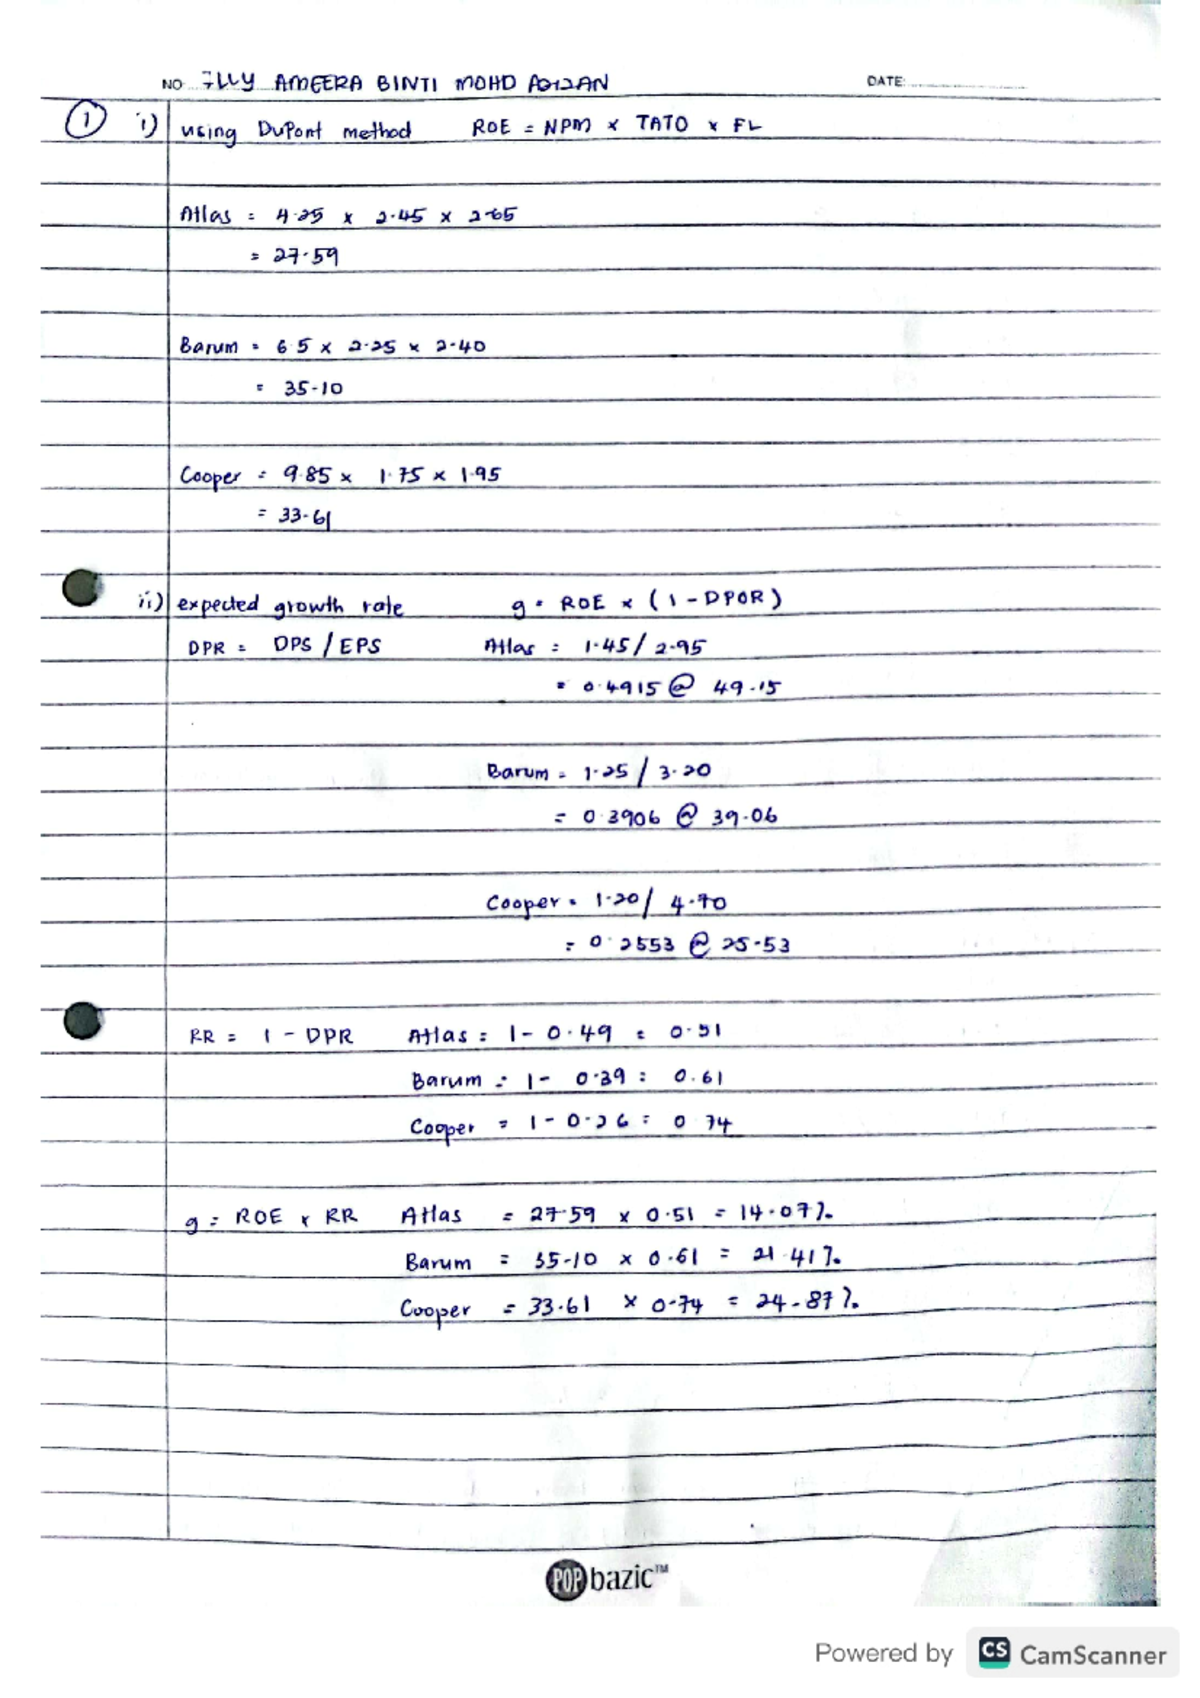 NO. ILLY AMEERA BINTI MOHD DATE:
① i) using DuPont method ROE = NPM × TATO × FL
Atlas = 4.25 × 2.45 × 2.65
= 27.59
Barum = 6.5 × 2.25 × 2.40
= 35.10
Cooper = 9.85 × 1.75 × 1.95
= 33.61
ii) expected growth rate g = ROE × (1 - DPOR)
DPR = DPS / EPS Atlas = 1.45 / 2.95
= 0.4915 @ 49.15
Barum = 1.25 / 3.20
= 0.3906 @ 39.06
Cooper = 1.20 / 4.70
= 0.2553 @ 25.53
RR = 1 - DPR Atlas = 1 - 0.49 = 0.51
Barum = 1 - 0.39 = 0.61
Cooper = 1 - 0.26 = 0.74
g = ROE × RR Atlas = 27.59 × 0.51 = 14.07%
Barum = 35.10 × 0.61 = 21.41%
Cooper = 33.61 × 0.74 = 24.87%
POP bazic™
Powered by CS CamScanner